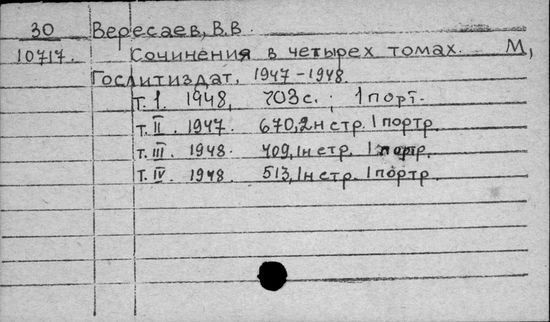 30 Вересаев, В.В.
10717. Сочинения в четырех томах. М,
Гослитиздат, 1947-1948.
т. 1. 1948, 703 с.; 1 порт.
т. II. 1947. 670, 2н стр. 1 портр.
т. III. 1948. 409, 1н стр. 1 портр.
т. IV. 1948. 513, 1н стр. 1 портр.